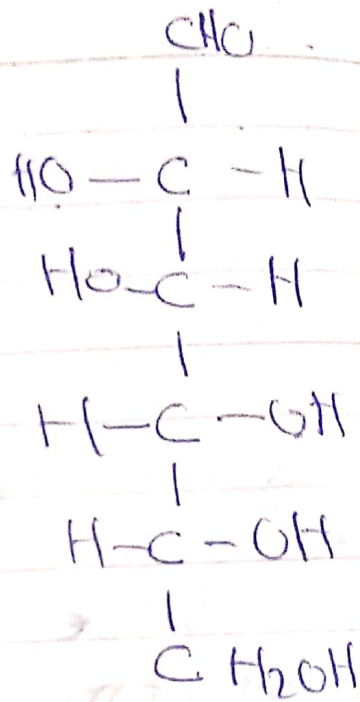 CHO
|
HO — C — H
|
HO — C — H
|
H — C — OH
|
H — C — OH
|
CH2OH